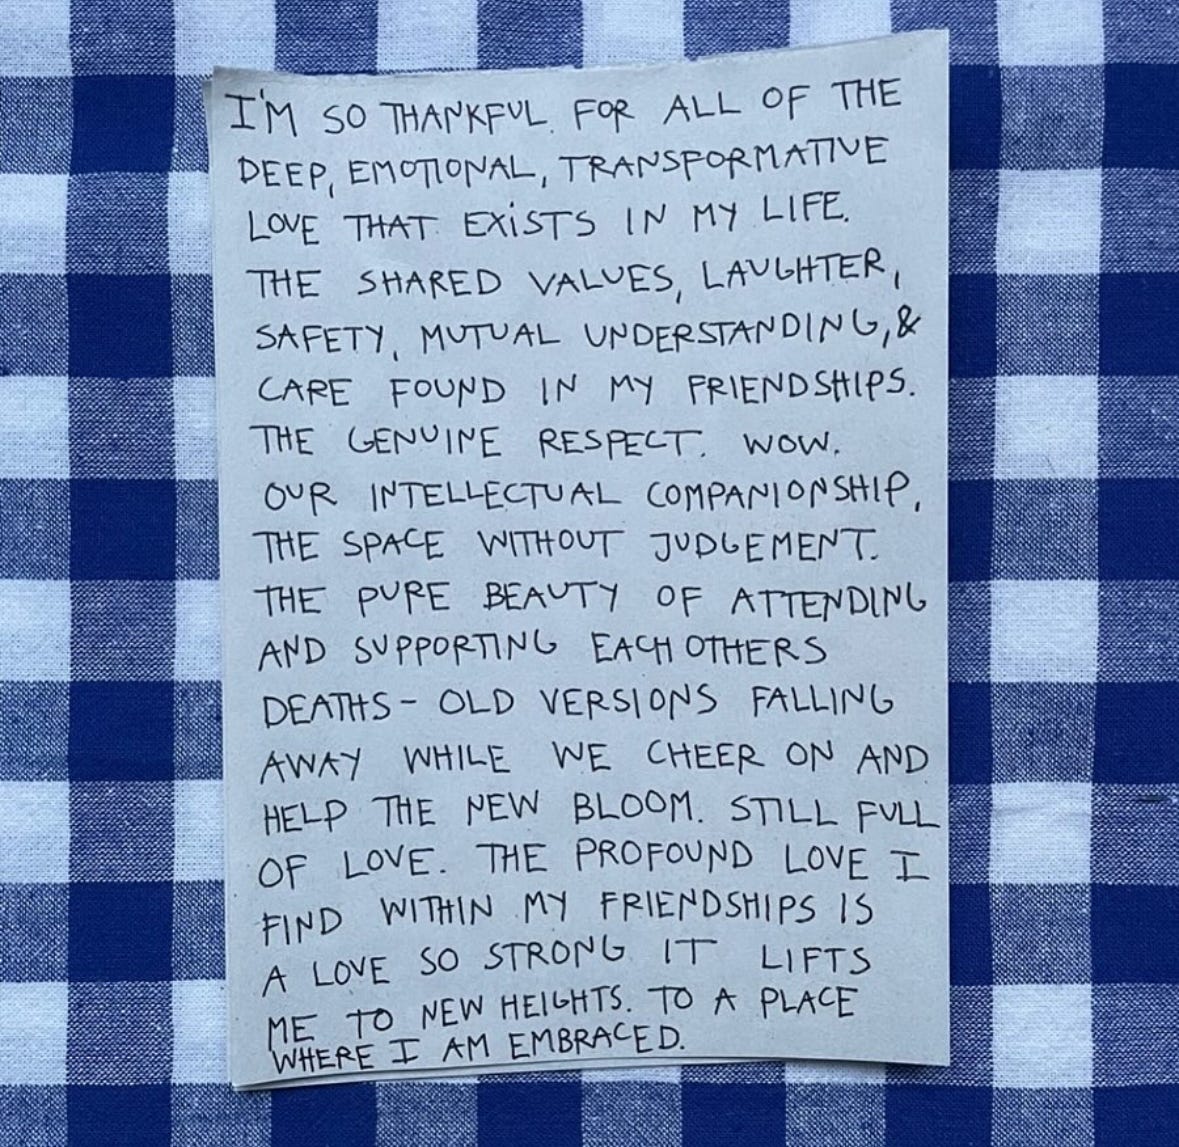 I'M SO THANKFUL. FOR ALL OF THE
DEEP, EMOTIONAL, TRANSFORMATIVE
LOVE THAT EXISTS IN MY LIFE.
THE SHARED VALUES, LAUGHTER,
SAFETY, MUTUAL UNDERSTANDING, &
CARE FOUND IN MY FRIENDSHIPS.
THE GENUINE RESPECT. WOW.
OUR INTELLECTUAL COMPANIONSHIP,
THE SPACE WITHOUT JUDGEMENT.
THE PURE BEAUTY OF ATTENDING
AND SUPPORTING EACH OTHERS
DEATHS - OLD VERSIONS FALLING
AWAY WHILE WE CHEER ON AND
HELP THE NEW BLOOM. STILL FULL
OF LOVE. THE PROFOUND LOVE I
FIND WITHIN MY FRIENDSHIPS IS
A LOVE SO STRONG IT LIFTS
ME TO NEW HEIGHTS. TO A PLACE
WHERE I AM EMBRACED.